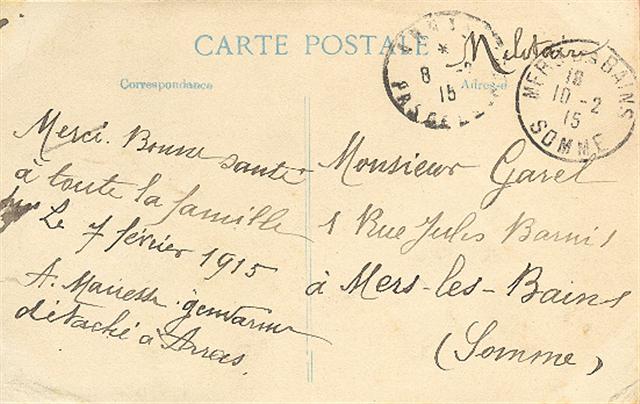 CARTE POSTALE Militaire
Correspondance
Adresse
8
15
PAS DE
MERS-LES-BAINS
18
10-2
15
SOMME
Merci. Bonne santé
à toute la famille
Le 7 février 1915
A. Mairesse gendarme
détaché à Arras.
Monsieur Garel
1 Rue Jules Barni
à Mers-les-Bains
(Somme)